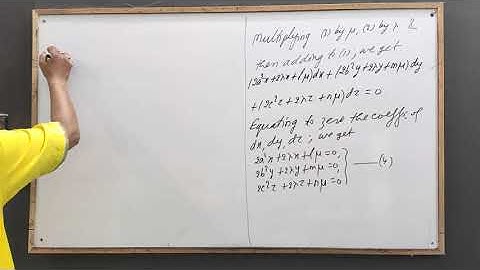 Multiplying (3) by μ, (2) by λ &
then adding to (1), we get
(2a²x+2λx+lμ)dx+(2b²y+2λy+mμ)dy
+(2c²z+2λz+nμ)dz=0
Equating to zero the coeffs of
dx, dy, dz; we get
2a²x+2λx+lμ=0,
2b²y+2λy+mμ=0, —(4)
2c²z+2λz+nμ=0